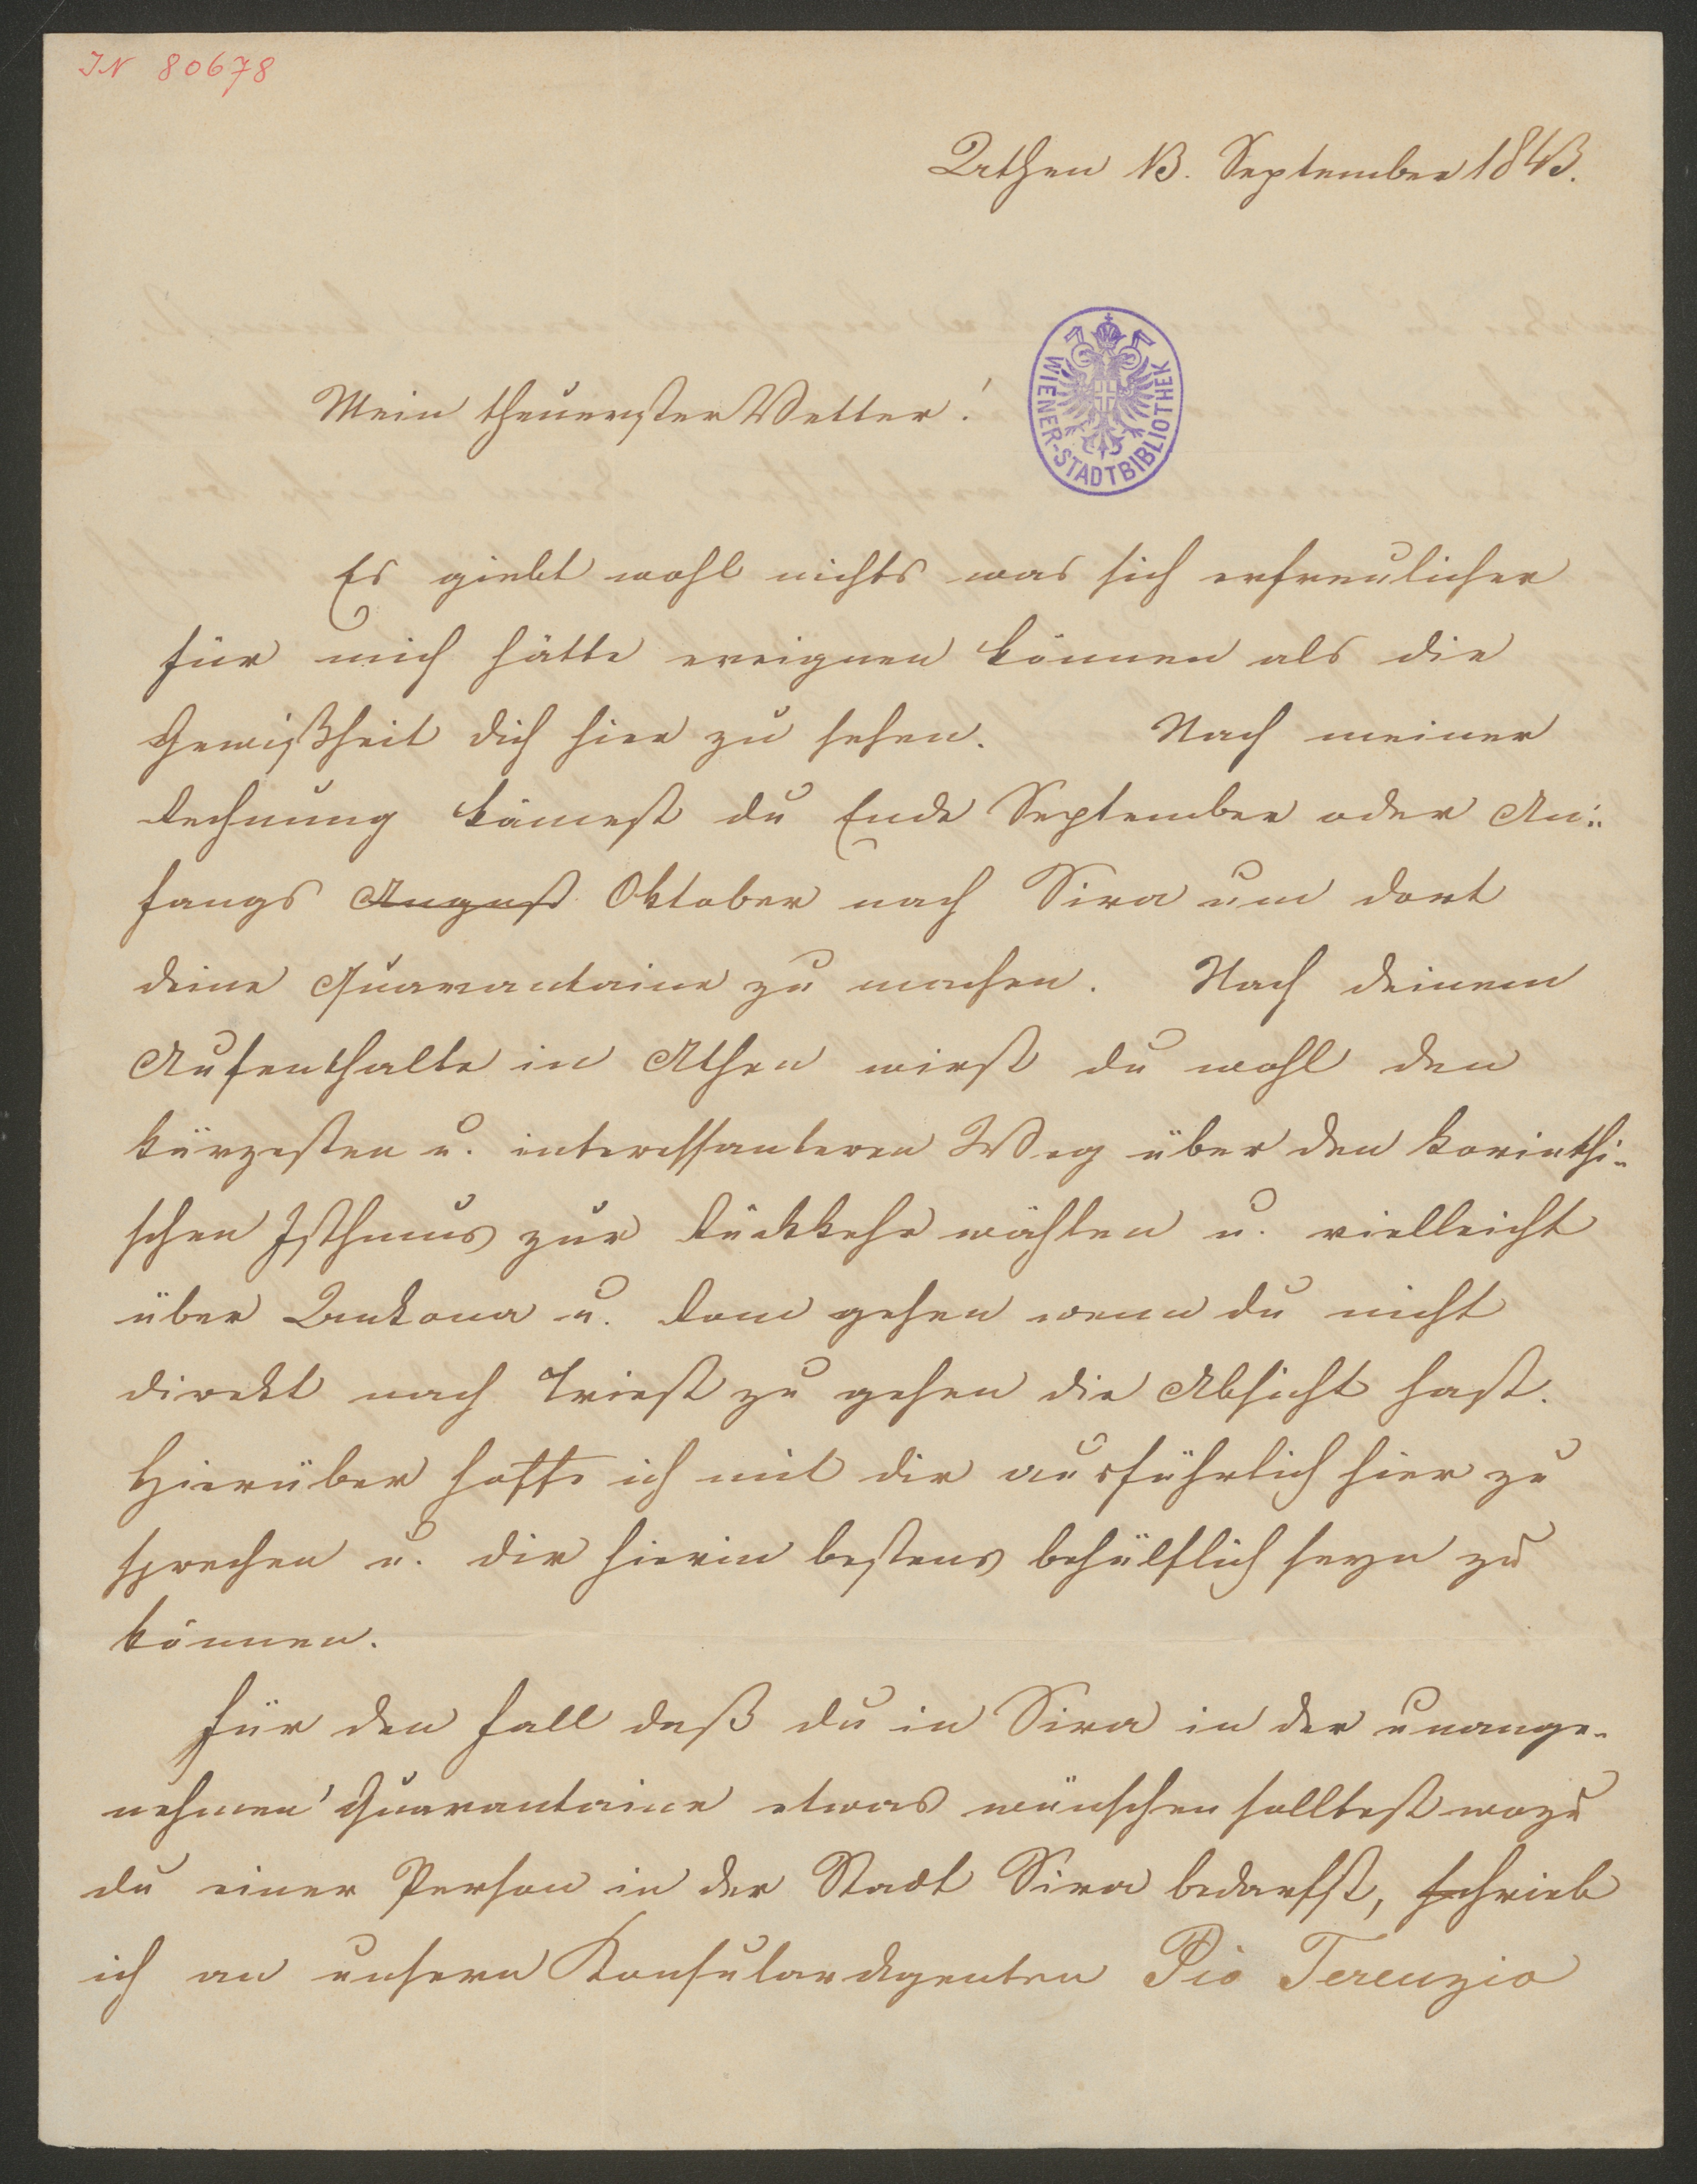 IN 80678
Athen 13. September 1843.
Mein theuerster Vetter!
WIENER-STADTBIBLIOTHEK
Es giebt wohl nichts was sich erfreulicher
für mich hätte ereignen können als die
Gewißheit dich hier zu sehen. Nach meiner
Rechnung kämest du Ende September oder An¬
fangs August Oktober nach Sira um dort
deine Quarantaine zu machen. Nach deinem
Aufenthalte in Athen wirst du wohl den
kürzesten u. interessanteren Weg über den korinthi¬
schen Isthmus zur Rückkehr wählen u. vielleicht
über Ankona u. Rom gehen wenn du nicht
direkt nach Triest zu gehen die Absicht hast.
Hierüber hoffe ich mit dir ausführlich hier zu
sprechen u. dir hierin bestens behülflich seyn zu
können.
Für den Fall daß du in Sira in der unange¬
nehmen Quarantaine etwas wünschen solltest wozu
du einer Person in der Stadt Sira bedarfst, schrieb
ich an unsern Konsularagenten Pio Terenzio